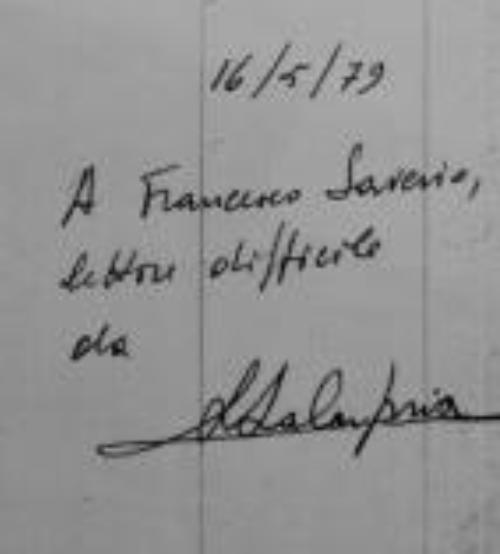 16/5/79
A Francesco Saverio,
lettore difficile
da